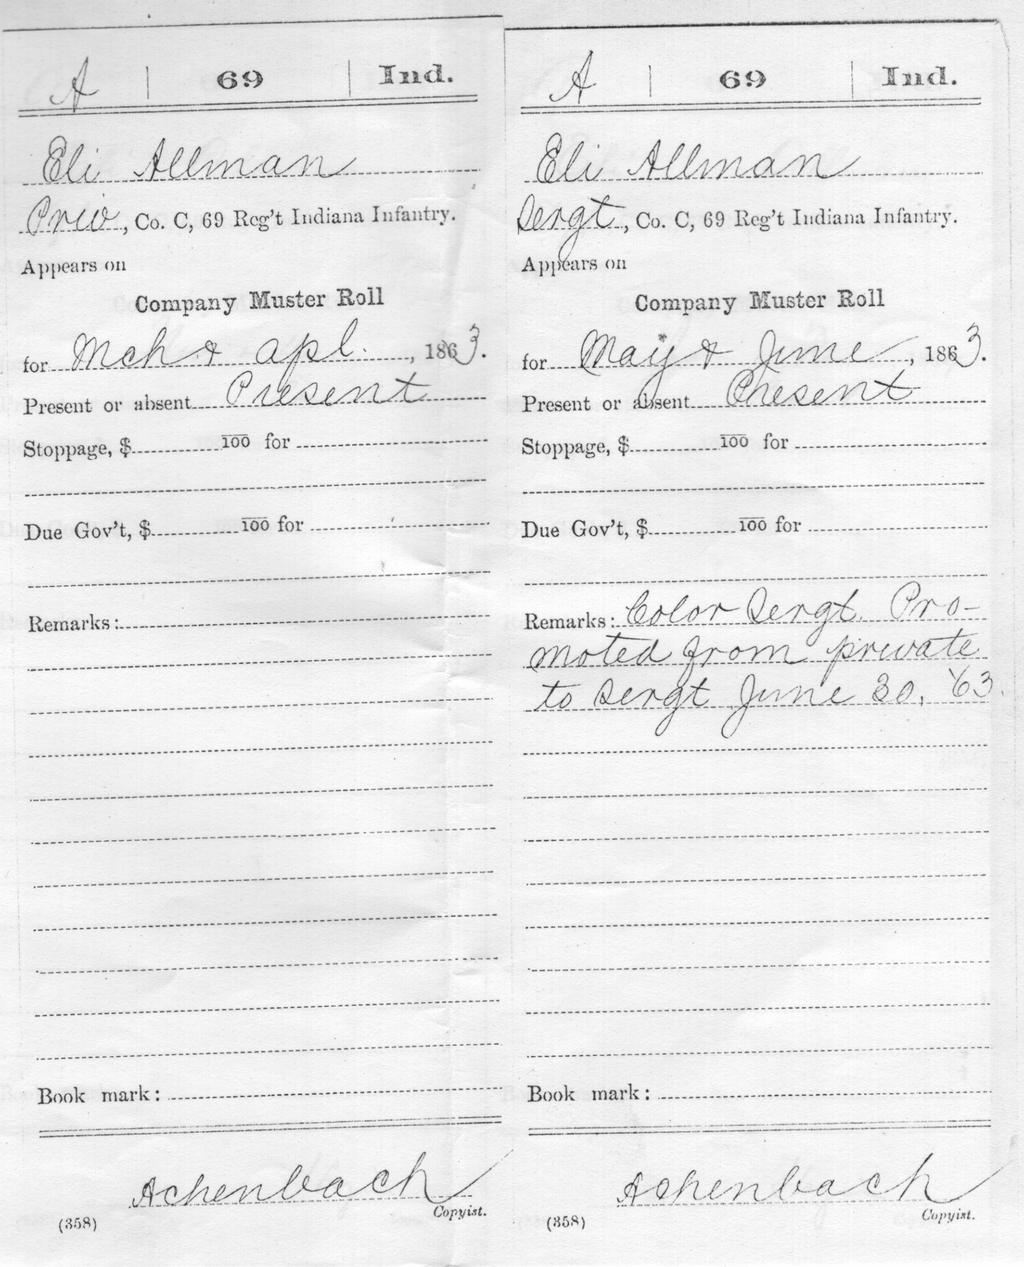 A | 69 | Ind.
Eli Allman
Priv, Co. C, 69 Reg't Indiana Infantry.
Appears on
Company Muster Roll
for Mch & Apl., 1863.
Present or absent Present
Stoppage, $ 100 for
Due Gov't, $ 100 for
Remarks:
Book mark:
Achenbach
Copyist.
(358)
A | 69 | Ind.
Eli Allman
Sergt, Co. C, 69 Reg't Indiana Infantry.
Appears on
Company Muster Roll
for May & June, 1863.
Present or absent Present
Stoppage, $ 100 for
Due Gov't, $ 100 for
Remarks: Color Sergt. Pro-
moted from private
to Sergt June 30, '63.
Book mark:
Achenbach
Copyist.
(358)